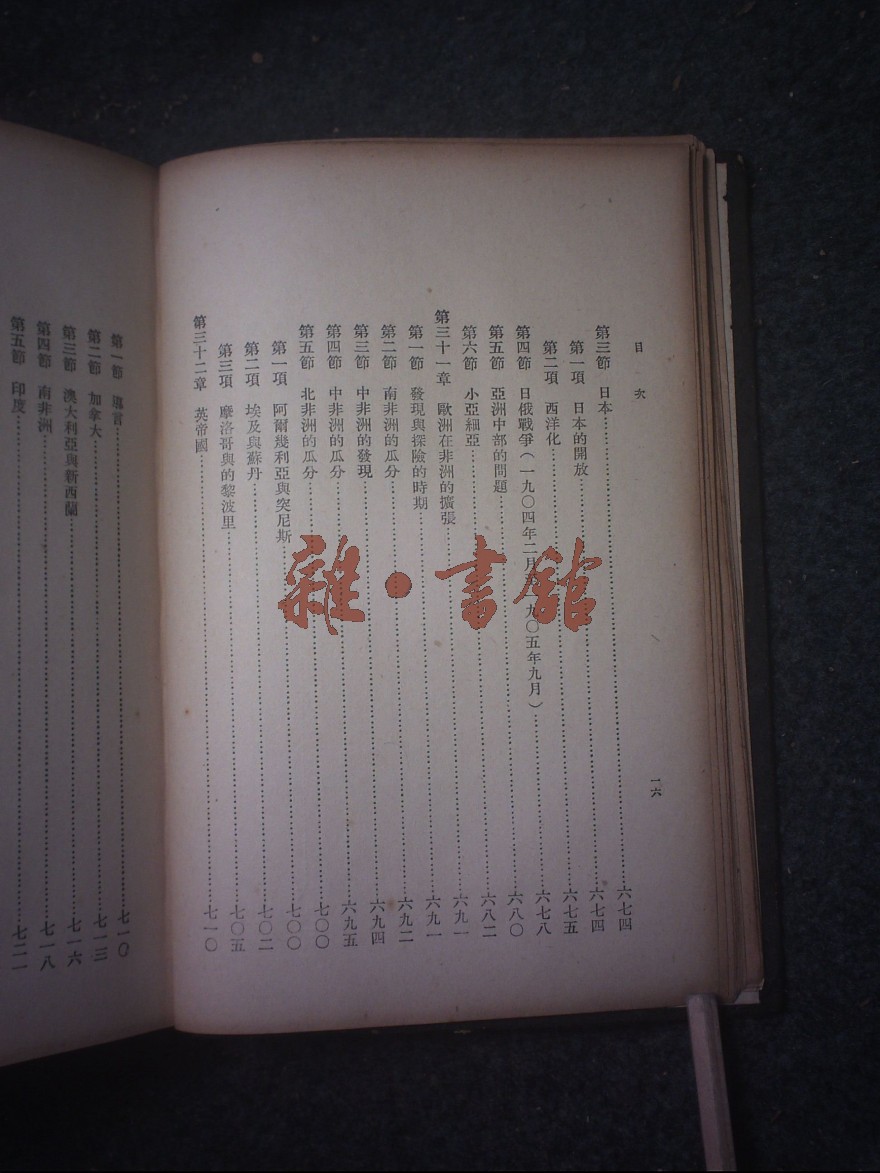 目次
第三節 日本……六七四
第一項 日本的開放……六七四
第二項 西洋化……六七五
第四節 日俄戰爭(一九〇四年二月 九〇五年九月)……六七八
第五節 亞洲中部的問題……六八〇
第六節 小亞細亞……六八二
第三十一章 歐洲在非洲的擴張……六九一
第一節 發現與探險的時期……六九一
第二節 南非洲的瓜分……六九二
第三節 中非洲的發現……六九四
第四節 中非洲的瓜分……六九五
第五節 北非洲的瓜分……七〇〇
第一項 阿爾幾利亞與突尼斯……七〇〇
第二項 埃及與蘇丹……七〇二
第三項 摩洛哥與的黎波里……七〇五
第三十二章 英帝國……七一〇
一六
第一節 言……七一〇
第二節 加拿大……七一三
第三節 澳大利亞與新西蘭……七一六
第四節 南非洲……七一八
第五節 印度……七二一
雜·書館